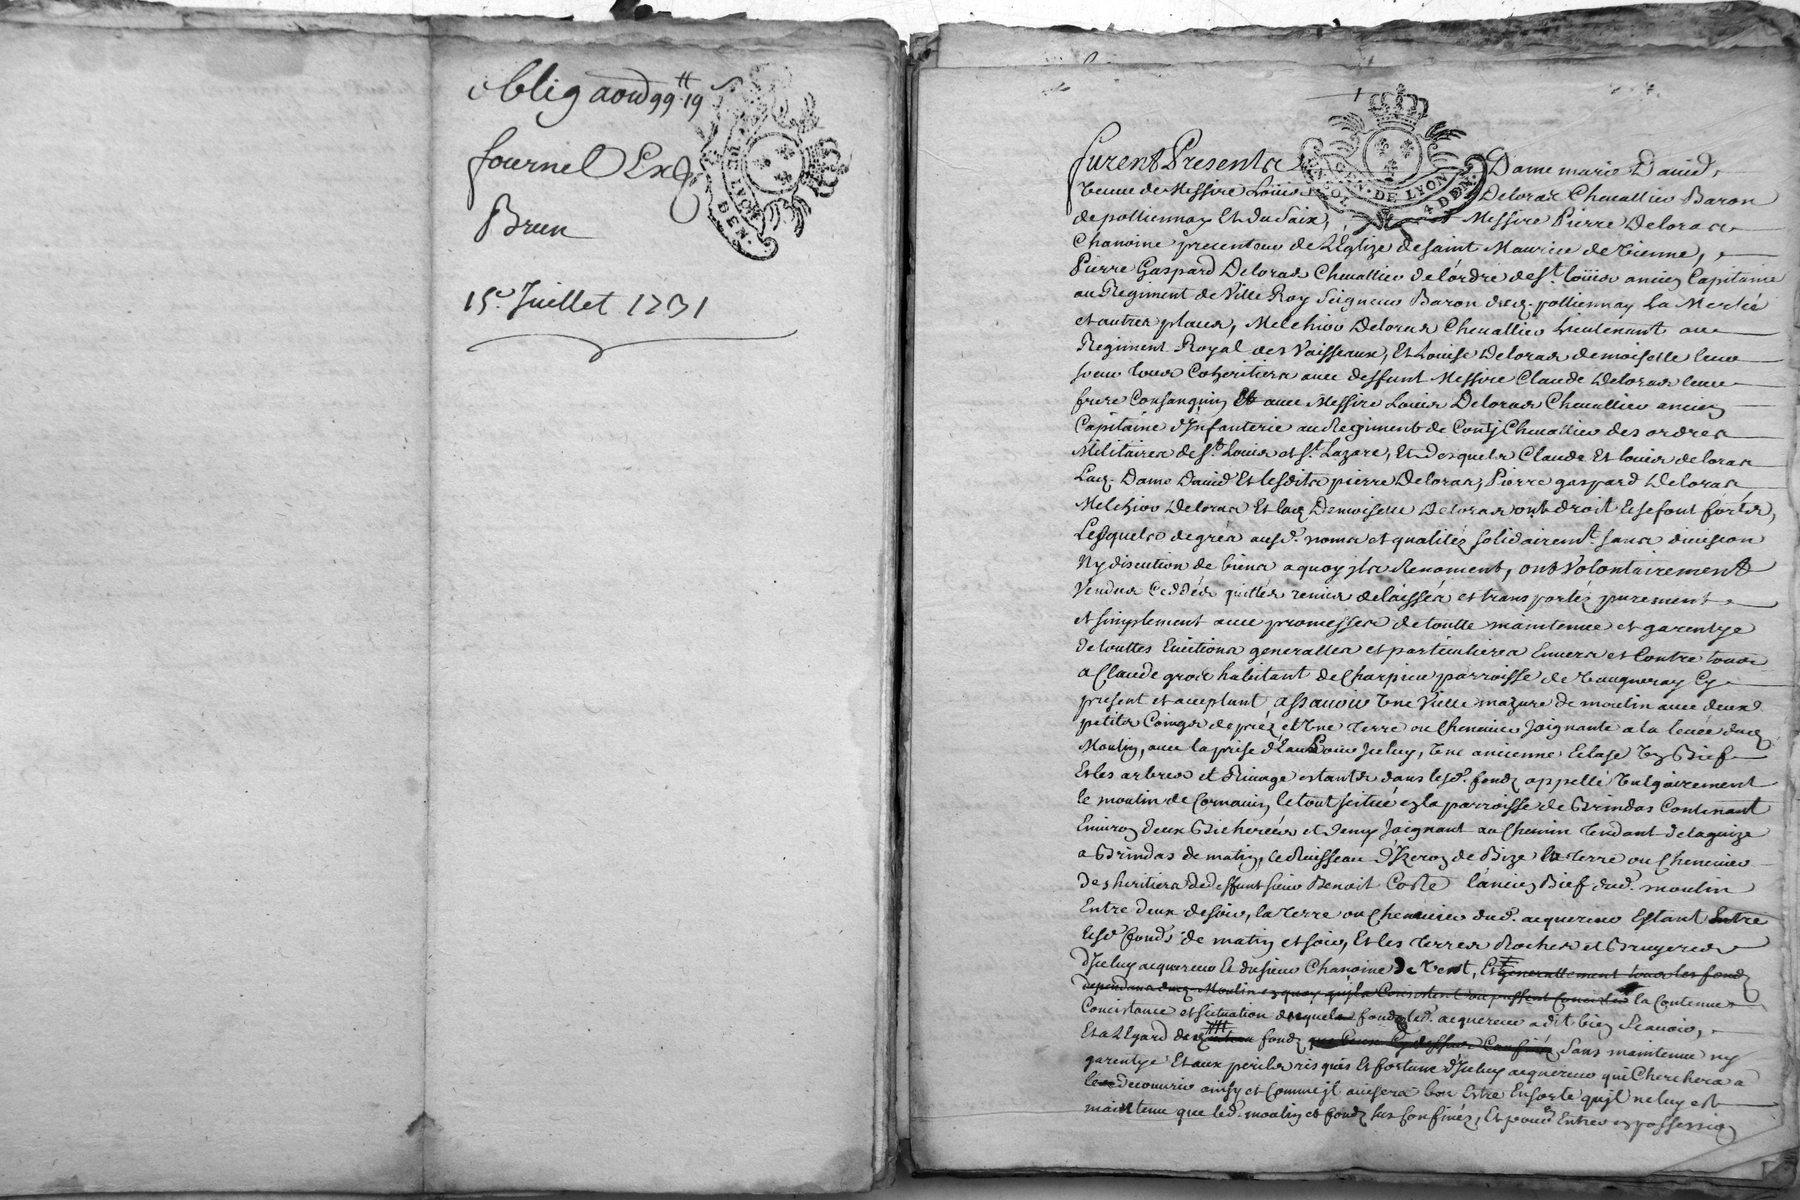 oblig aoud 99tt 19s
fournel Exp
Brun
15e Juillet 1731
GEN. DE LYON
DEN.
1
GEN. DE LYON
4 DEN.
furent Presents Dame marie David
veuve de Messire Loüis Deloras Chevallier Baron
de pollionnay Et du Saix, Messire Pierre Deloras
Chanoine precenteur de L'Eglize de saint Maurice de vienne,
Pierre Gaspard Deloras Chevallier de l'ordre de St. loüis ancien Capitaine
au Regiment de Ville Roy Seigneur Baron dud. pollionnay La
et autres places, Melchior Deloras Chevallier Lieutenant au
Regiment Royal des Vaisseaux, Et Louise Deloras demoiselle leur
soeur tous Coheritiers avec deffunt Messire Claude Deloras leur
frere Consanguin Et avec Messire Louis Deloras Chevallier ancien
Capitaine d'Infanterie au Regiment de Conty Chevallier des ordres
Militaires de St. Louis et St. Lazare, Et desquels Claude Et louis deloras
Lad. Dame David Et lesdits pierre Deloras, Pierre gaspard Deloras
Melchior Deloras Et lad. Demoiselle Deloras ont droit Et se font forts,
Lesquels de grés ausd. noms et qualités solidairemt. sans division
Ny discution de biens a quoy ils Renoncent, ont Volontairement
Vendus Ceddés quittés remis delaissés et transportéz purement
et simplement avec promesses de toutte maintenue et garentye
de touttes Evictions generalles et particulieres Envers et Contre tous
a Claude gros habitant de Charpieu parroisse de Vaugneray Cy
present et acceptant, assavoir Une Vielle mazure de moulin avec deux
petits Coings de prés et Une Terre ou Cheneviere Joignante a la levée dud.
Moulin, avec la prise d'Eau Pour Iceluy, Une ancienne Eclase Un Bief
Et les arbres et Rivage estants dans lesd. fonds appellé Vulgairement
le moulin de Cornavin, le tout scitué en la parroisse de Brindas Contenant
Environ deux Bicherées et demy Joignant au Chemin Tendant de
a Brindas de matin, le Ruisseau d'Izeron de Bize la Terre ou Cheneviere
des heritiers de deffunt sieur Benoit Coste l'ancien Bief dud. moulin
Entre deux de soir, la Terre ou Cheneviere dud. acquereur Estant Entre
lesd. fonds de matin et soir, Et les Terres Rocher et Bruyeres
d'Iceluy acquereur Et du sieur Chanoine de Vent, Et generallement tous les fonds
dependans dud. Moulin en quoy qu'ils Consistent ou puissent Concister la Contenue
Concistance et scituation desquels fonds led. acquereur a dit bien Scavoir,
Et a L'Egard des autres fonds que Ceux Cy dessus Confinés Sans maintenue ny
garentye Et aux perils risques Et fortune d'Iceluy acquereur qui Cherchera a
les decouvrir ainsy et Comme Il avisera bon Estre Ensorte qu'il ne luy est
maintenue que led. moulin et fonds sus Confinés, Et pour Entrer en possession